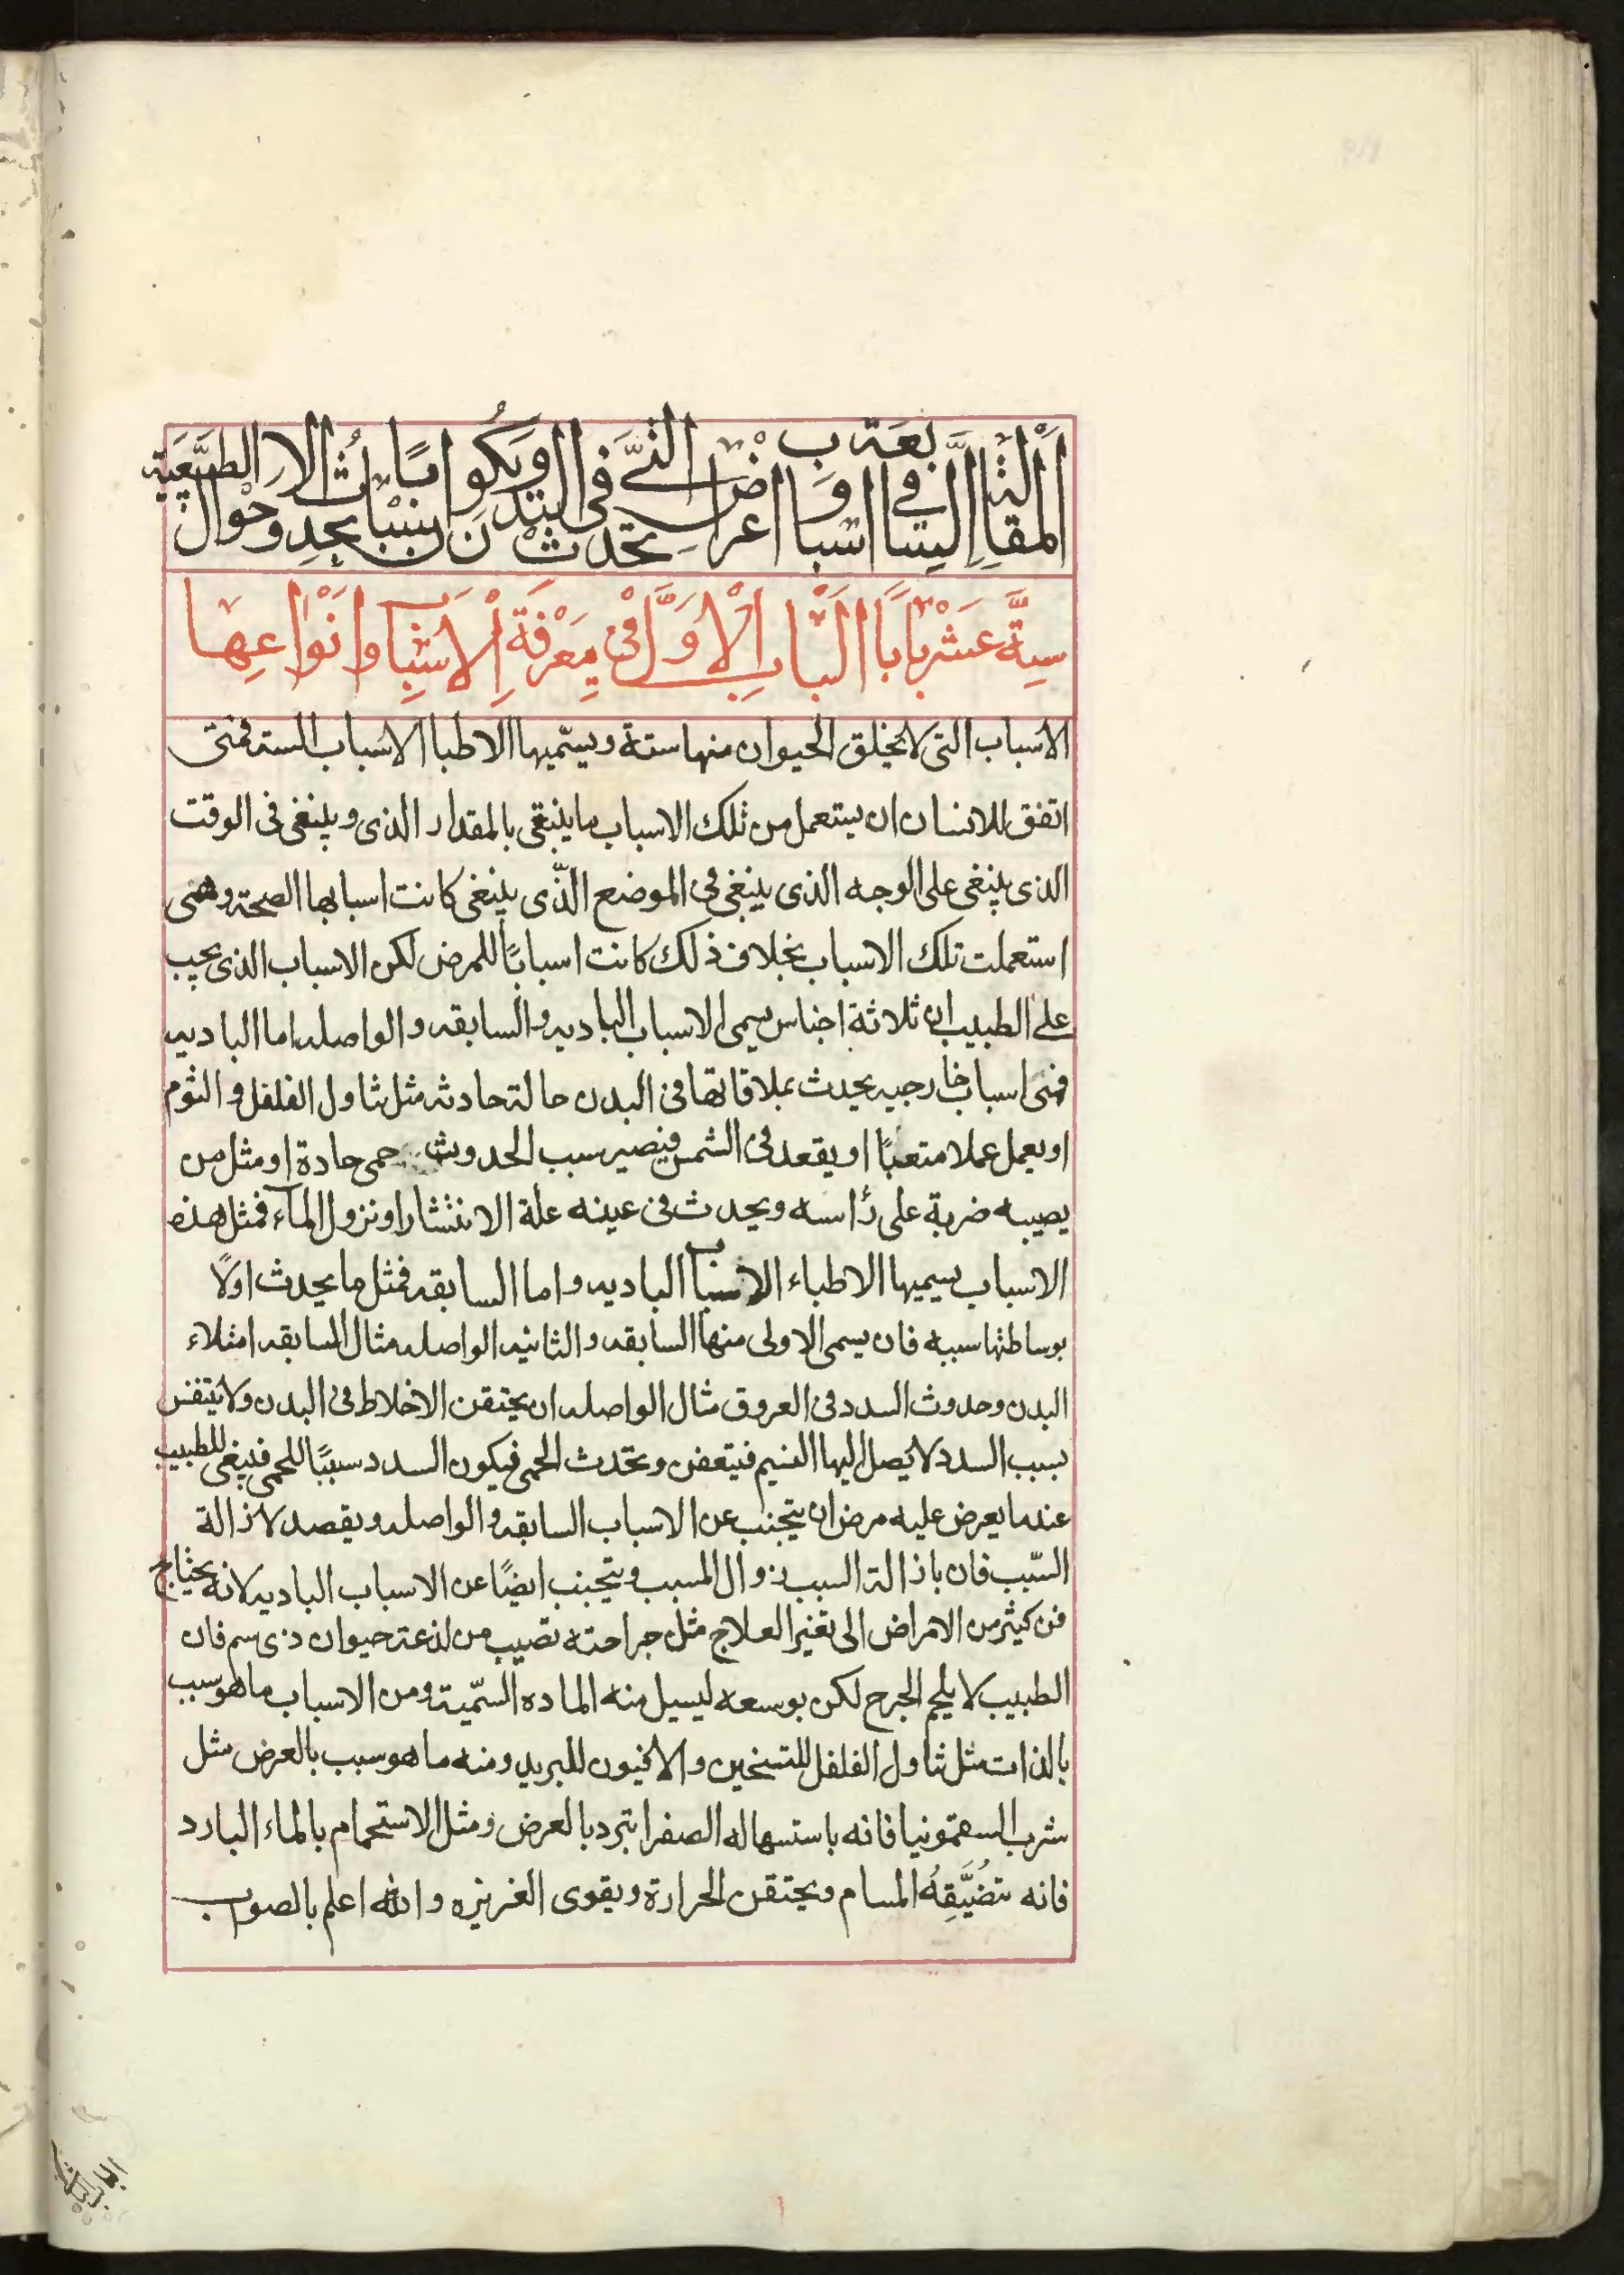 المقالة السابعة في اسباب واعراض التي تحدث في البدن ويكون اسبابا بحدوث الاحوال الطبيعية
ستَّة عشر بابا الباب الاول في معرفة الاسباب وانواعها
الاسباب التى لا تخلق الحيوان منها ستة ويسمّيها الاطبا الاسباب السته فمتى
اتفق للانسان ان يستعمل من تلك الاسباب ما ينبغى بالمقدار الذى وينبغى فى الوقت
الذى ينبغى على الوجه الذى ينبغى فى الموضع الذّى ينبغى كانت اسبابها الصحة وهتى
استعملت تلك الاسباب بخلاف ذلك كانت اسبابًا للمرض لكن الاسباب الذى يجب
على الطبيب ان ثلاثة اجناس يسمى الاسباب الباديه والسابقه والواصله اما الباديه
فهى اسباب خارجيه يحدث بملاقاتها فى البدن حالة حادثه مثل تناول الفلفل والثوم
او يعمل عملا متعبًا او يقعد فى الشمس فيصير سبب الحدوث حمى حادة او مثل من
يصيبه ضربة على رأسه ويحدث فى عينه علة الانتشار او نزول الماء فمثل هذه
الاسباب يسميها الاطباء الاسباب الباديه واما السابقه فمثل ما يحدث اولًا
بوساطتها سببه فان يسمى الاولى منها السابقه والثانيه الواصله مثال السابقه امتلاء
البدن وحدوث السدد فى العروق مثال الواصله ان يحتقن الاخلاط فى البدن ولا يتنفس
بسبب السدد لا يصل اليها النسيم فيتعفن وتحدث الحمى فيكون السدد سببًا للحمى فينبغى للطبيب
عندما يعرض عليه مرض ان يتجنب عن الاسباب السابقه والواصله ويقصد لاذالة
السّبب فان باذالة السبب زوال المسبب ويتجنب ايضًا عن الاسباب الباديه لانه يحتاج
فى كثير من الامراض الى تغير العلاج مثل جراحته تصيب من لذعة حيوان ذى سم فان
الطبيب لا يلحم الجرح لكن يوسعه ليسيل منه الماده السّمية ومن الاسباب ما هو سبب
بالذات مثل تناول الفلفل للتسخين والافيون للبريد ومنه ما هو سبب بالعرض مثل
شرب السقمونيا فانه باستسهاله الصفرا تبرد بالعرض ومثل الاستحمام بالماء البارد
فانه تضيّقه المسام ويحتقن الحرارة ويقوى الغريزه والله اعلم بالصوب